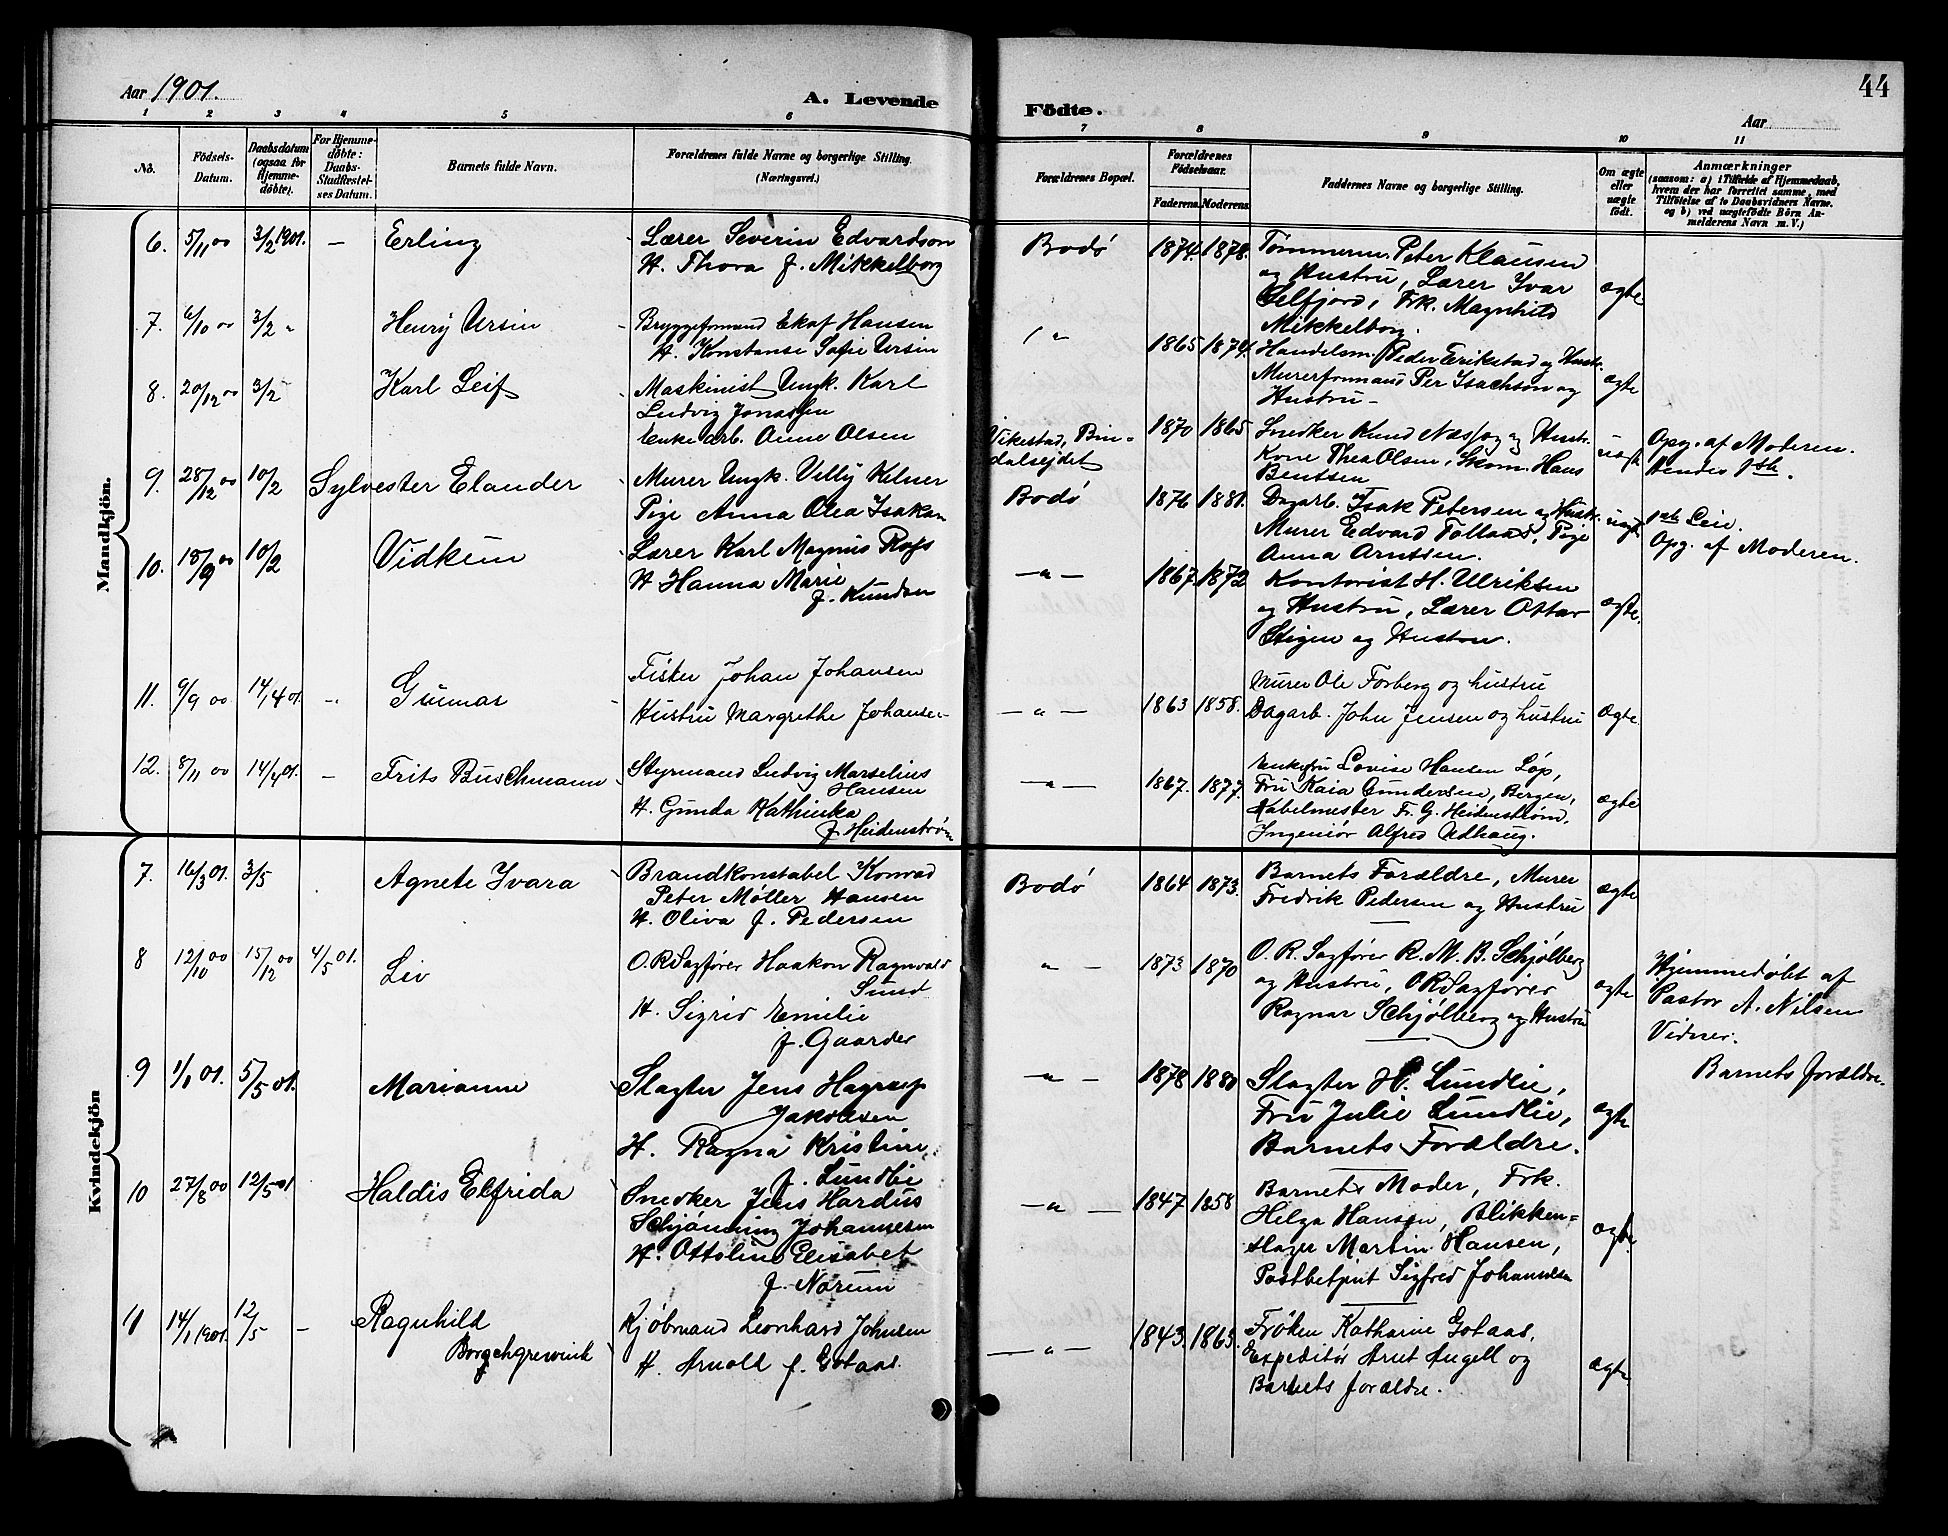 Aar 1901.
A. Levende
1 2 3 4 5 6
No.
Födsels-Datum.
Daabsdatum (ogsaa for Hjemme-döbte).
For Hjemme-döbte: Daabs-Stadfæstel-ses Datum.
Barnets fulde Navn.
Forældrenes fulde Navne og borgerlige Stilling. (Næringsvei.)
Mandkjön.
6. 5/11 00 3/2 1901. — Erling
Lærer Severin Edvardson
H. Thora f. Mikkelborg
7. 6/10 00 3/2 " Henry Ursin
Bryggeformand Ekaf Hansen
H. Konstanse Sofie Ursin
8. 20/12 00 3/2 Karl Leif
Maskinist Ungk. Karl
Ludvig Jonassen
Enke arb. Anne Olsen
9. 28/12 00 10/2 Sylvester Elander
Murer Ungk. Villy Kelner
Pige Anna Olea Isaksen
10. 18/9 00 10/2 Vidkun
Lærer Karl Magnus
H Hanna Marie
f. Kundsen
11. 9/9 00 14/4 01. Gunnar
Fisker Johan Johansen
Hustru Margrethe Johansen
12. 8/11 00 14/4 01. — Frits Buschmann
Styrmand Ludvig Marselius
Hansen
H. Gunda Kathinka
f. Heidenstrøm
Kvindekjön
7. 16/3 01. 3/5 Agnete Ivara
Brandkonstabel Konrad
Peter Møller Hansen
H. Oliva f. Pedersen
8 12/10 00 15/12 00 4/5 01. Liv
O.R Sagfører Haakon Ragnvald
Sund
H. Sigrid Emilie
f. Gaarder
9 1/1 01. 5/5 01. Marianne
Slagter Jens
Jakobsen
H. Ragna Kristine
f. Lundlie
10 27/8 00 12/5 01 Haldis Elfrida
Snedker Jens Hardus
Schjønning Johannesen
H. Ottoline Elisabet
f. Norum
11 14/1 1901. 12/5 — Ragnhild
Borgchgrevink
Kjøbmand Leonhard Johnsen
H. Arnold f. Gotaas.
44
Födte.
Aar
7 8 9 10 11
Forældrenes Bopæl.
Forældrenes Födselsaar.
Faderens. Moderens.
Faddernes Navne og borgerlige Stilling.
Om ægte eller uægte födt.
Anmærkninger
(saasom: a) i Tilfælde af Hjemmedaab, hvem der har forrettet samme, med Tilföielse af to Daabsvidners Navne. og b) ved uægtefödte Börn Anmelderens Navn m. V.)
Bodø 1874. 1878. Tømmerm. Peter Klausen
og Hustru, Lærer Ivar
Selfjord, Frk. Magnhild
Mikkelborg. ægte
" 1865 1874. Handelsm. Peder Erikstad og Hustr.
Murerformand Per Isachson og
Hustru — ægte
Vikestad, Bin-
dalsejdet 1870 1865 Snedker Knud Næs og Hustr.
Kone Thea Olsen, Skom. Hans
Bentsen uægte Opg. af Moderen.
Hendes 1ste.
Bodø 1876 1881. Dagarb. Isak Petersen og Hustr.
Murer Edvard Tollaas, Pige
Anna Arntsen. uægte 1ste Leie.
Opg. af Moderen.
— " — 1867. 1872 Kontorist H. Ulriksen
og Hustru, Lærer Ottar
Stigen og Hustru. ægte.
— " — 1863 1858. Murer Ole Forberg og hustru
Dagarb. John Jensen og hustru Ægte.
— " — 1867. 1877. Enkefru Lovise Hansen Løp,
Fru Kaia Gundersen, Bergen,
Kabelmester Fr. G. Heidenstrøm,
Ingeniør Alfred Udhaug. ægte
Bodø 1864 1873. Barnets Forældre, Murer
Fredrik Pedersen og Hustru ægte
" — 1873 1870 O.R. Sagfører R. M. B. Schjølberg
og Hustru, O R Sagfører
Ragnar Schjølberg og Hustru ægte Hjemmedøbt af
Pastor A. Nilsen
Vidner:
Barnets forældre.
— " — 1878 1880 Slagter H. Lundlie,
Fru Julie Lundlie,
Barnets Forældre. ægte
— " — 1847 1858 Barnets Moder, Frk.
Helga Hansen, Blikken-
slager Martin Hansen,
Postbetjent Sigfred Johannesen ægte.
— " — 1843. 1863. Frøken Katharine Gotaas.
Expeditør Arnt Angell og
Barnets forældre. ægte.